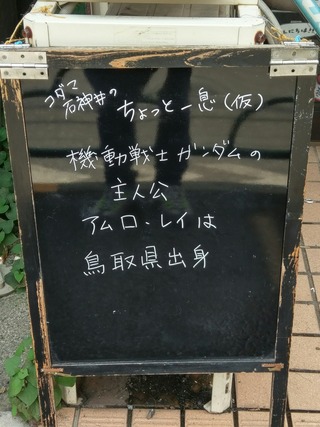 コダマ
石神井の
ちょっと一息(仮)
機動戦士ガンダムの
主人公
アムロ・レイは
鳥取県出身